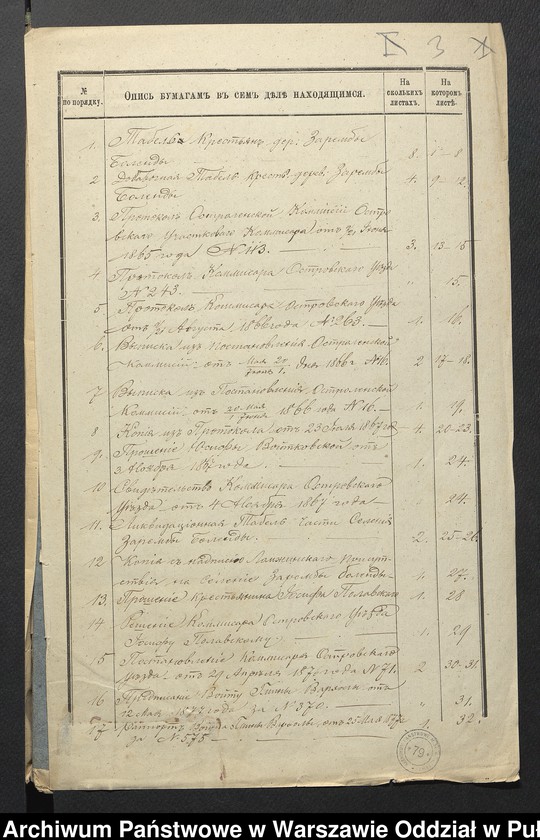 3
№ по порядку.
Опись бумагамъ въ семъ дѣлѣ находящимся.
На сколькихъ листахъ.
На которомъ листѣ.
1. Табель Крестьянъ дер. Зарембы
Боленды 8. 1-8
2. Добавочная Табель Крест. дерев. Зарембы 4. 9-12.
Боленды
3. Протоколъ Остроленской Коммисіи Остро-
вскаго Участковаго Коммисара отъ Іюня
1865 года № 113. 3. 13-15
4 Протоколъ Коммисара Островскаго Уѣзда
№ 243. " 15.
5 Протоколъ Коммисара Островскаго Уѣзда
отъ Августа 1866 года № 263. 1. 16.
6. Выписка изъ постановленія Остроленской
Коммисіи отъ Мая 20/Іюня 1. дня 1866 г. №16. 2 17-18.
7 Выписка изъ Постановленія Остроленской
Коммисіи отъ 20 мая/1 Іюня 1866 года №16. 1. 19.
8 Копія изъ Протокола отъ 23 Іюля 1867 год 4. 20-23.
9. Прошеніе Войтковской отъ
3 Ноября 1867 года. 1. 24.
10 Свидѣтельство Коммисара Островскаго
Уѣзда отъ 4 Ноября 1867 года 24.
11. Ликвидаціонная Табель части Селенія
Зарембы Боленды. 2. 25-26.
12 Копія съ надписью
на Селеніе Зарембы Боленды 1. 27.
13. Прошеніе Крестьянина Іосифа Полавскаго 1. 28
14 Решеніе Коммисара Островскаго Уѣзда
Іосифу Полавскому. 1. 29
15 Постановленіе Коммисара Островскаго
Уѣзда отъ 29 Апреля 1870 года №71. 2 30-31
16 Предписаніе Войту Гмины отъ
12 Мая года за №370. " 31.
17 Рапортъ Войта Гмины отъ 25 Мая 1. 32.
за №575
79
Archiwum Państwowe w Warszawie Oddział w Puł